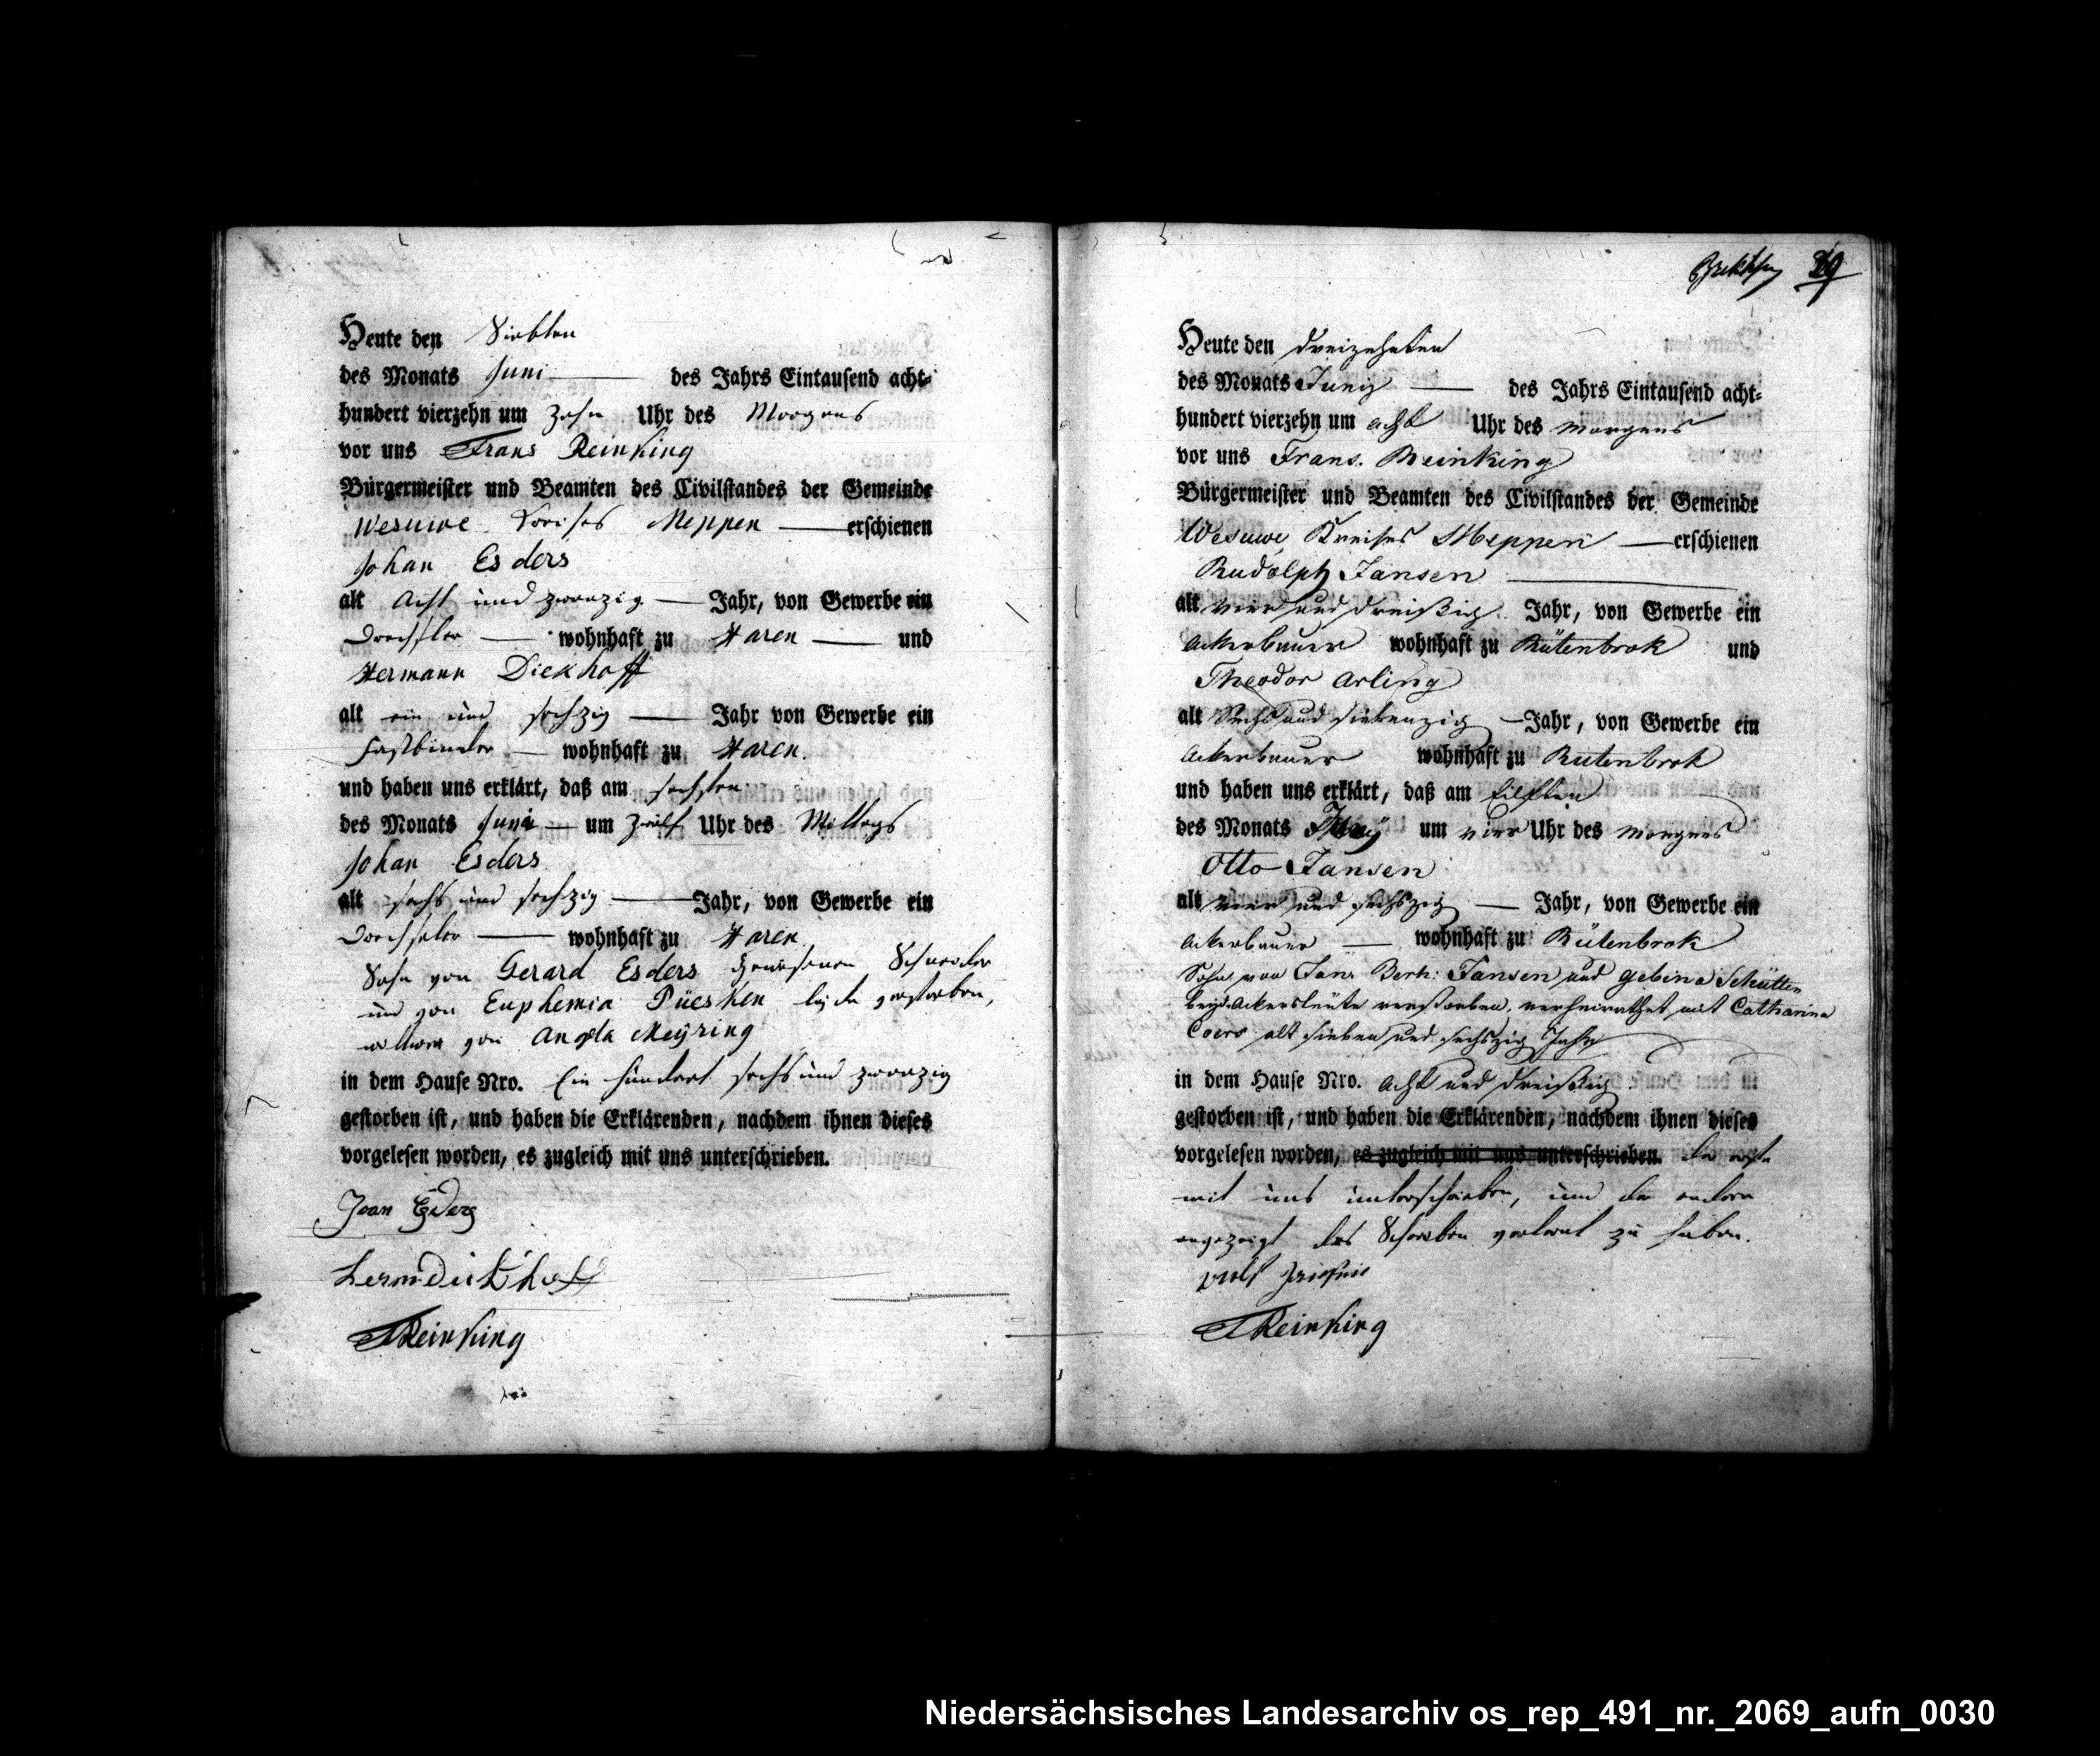 Heute den Siebten
des Monats Juni des Jahrs Eintausend acht-
hundert vierzehn um Zehn Uhr des Morgens
vor uns Frans Reinking
Bürgermeister und Beamten des Civilstandes der Gemeinde
Wesuwe Kreises Meppen erschienen
Johan Esders
alt Acht und zwanzig Jahr, von Gewerbe ein
Drechsler wohnhaft zu Haren und
Hermann Dickhoff
alt ein und sechzig Jahr von Gewerbe ein
Fassbinder wohnhaft zu Haren.
und haben uns erklärt, daß am sechsten
des Monats Juni um zwölf Uhr des Mittags
Johan Esders
alt sechs und sechzig Jahr, von Gewerbe ein
Drechseler wohnhaft zu Haren
Sohn von Gerard Esders gewesenen Schneider
und von Euphemia Püesken beide verstorben,
wittwer von Angla Meÿring
in dem Hause Nro. Ein hundert sechs und zwanzig
gestorben ist, und haben die Erklärenden, nachdem ihnen dieses
vorgelesen worden, es zugleich mit uns unterschrieben.
Joan Esders
Herm Dickhoff
FReinking
29
Heute den dreizehnten
des Monats Juny des Jahrs Eintausend acht-
hundert vierzehn um acht Uhr des Morgens
vor uns Frans. Reinking
Bürgermeister und Beamten des Civilstandes der Gemeinde
Wesuwe Kreises Meppen erschienen
Rudolph Jansen
alt vier und dreißig Jahr, von Gewerbe ein
Ackerbauer wohnhaft zu Rütenbrok und
Theodor Arling
alt Sechs und siebenzig Jahr, von Gewerbe ein
Ackerbauer wohnhaft zu Rütenbrok
und haben uns erklärt, daß am Eilften
des Monats um vier Uhr des Morgens
Otto Jansen
alt vier und sechszig Jahr, von Gewerbe ein
Ackerbauer wohnhaft zu Rütenbrok
Sohn von Jans Berh: Jansen und Gebina Schütten
beyde Ackersleute verstorben, verheirathet mit Catharina
Coers alt sieben und sechszig Jahr
in dem Hause Nro. acht und dreißig
gestorben ist, und haben die Erklärenden, nachdem ihnen dieses
vorgelesen worden, es zugleich mit uns unterschrieben. der erste
mit uns unterschrieben, und der andere
angezeigt das Schreiben verlernt zu haben.
FReinking
Niedersächsisches Landesarchiv os_rep_491_nr._2069_aufn_0030